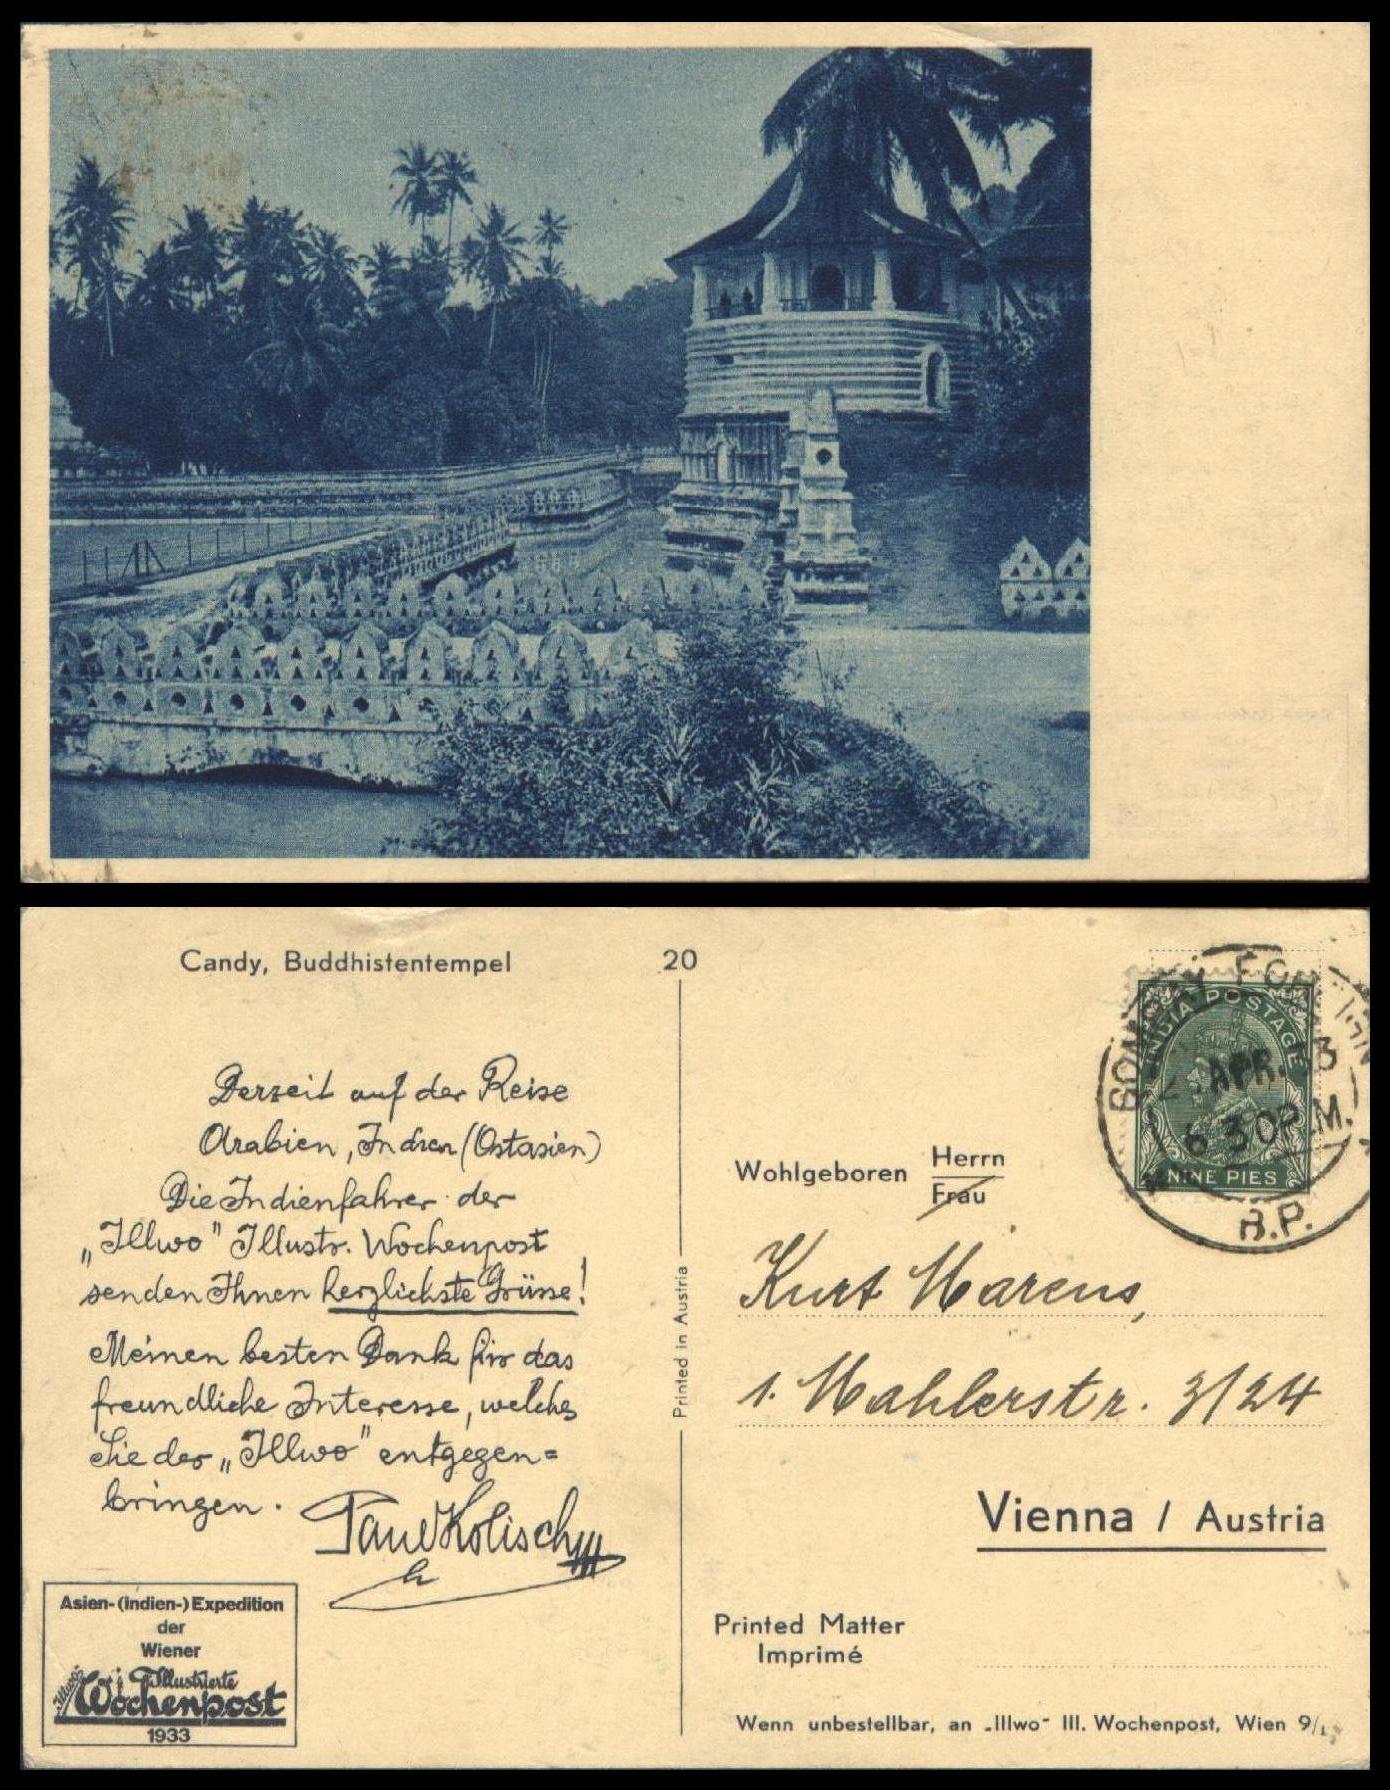 Candy, Buddhistentempel
20
Derzeit auf der Reise
Arabien, Indien (Ostasien)
Die Indienfahrer der
„Illwo" Illustr. Wochenpost
senden Ihnen herzlichste Grüsse!
Meinen besten Dank für das
freundliche Interesse, welches
Sie der „Illwo" entgegen=
bringen.
Paul Kolisch
Asien-(Indien-) Expedition
der
Wiener
Illwo Illustrierte
Wochenpost
1933
Printed in Austria
INDIA POSTAGE
NINE PIES
BOMBAY FOREIGN
2 APR. 3
6 30 P.M.
R.P.
Wohlgeboren Herrn
Frau
Kurt Marcus,
1. Mahlerstr. 3/24
Vienna / Austria
Printed Matter
Imprimé
Wenn unbestellbar, an „Illwo" Ill. Wochenpost, Wien 9/1